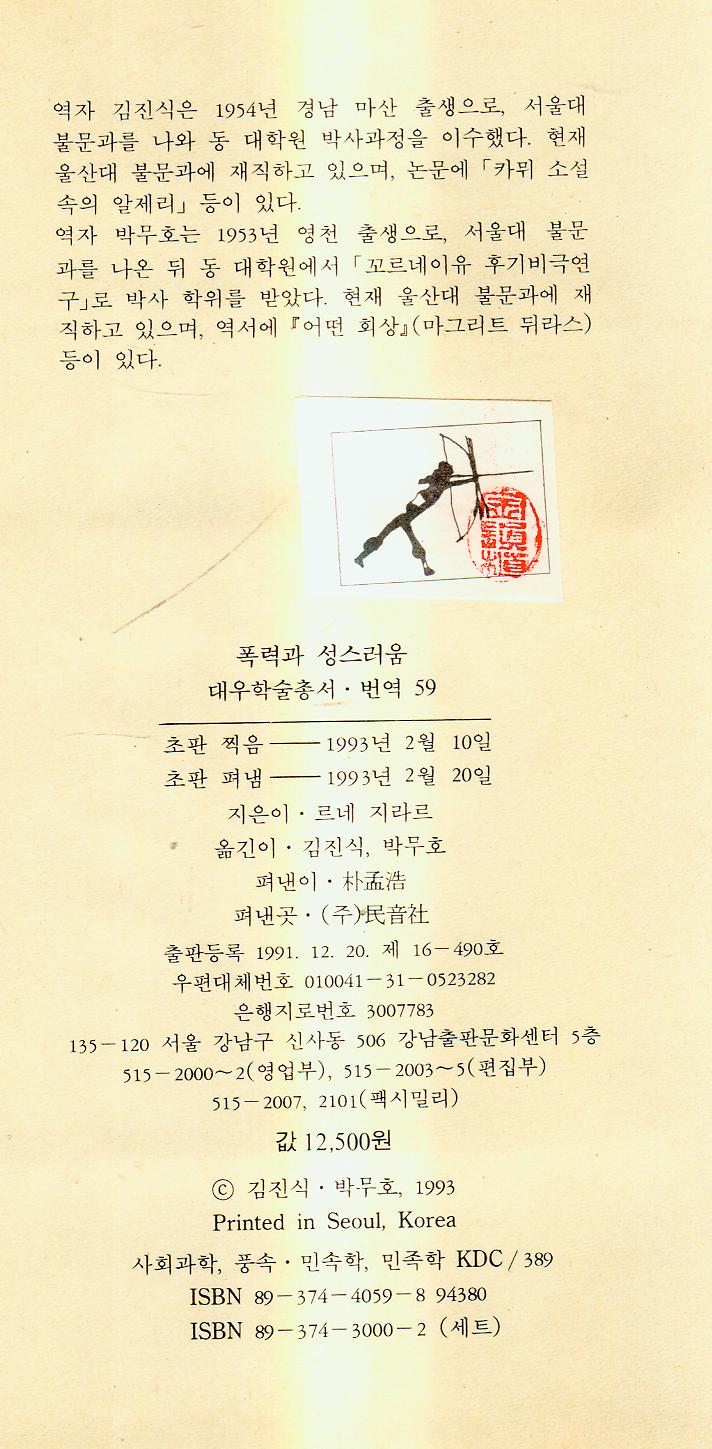 역자 김진식은 1954년 경남 마산 출생으로, 서울대
불문과를 나와 동 대학원 박사과정을 이수했다. 현재
울산대 불문과에 재직하고 있으며, 논문에 「카뮈 소설
속의 알제리」 등이 있다.
역자 박무호는 1953년 영천 출생으로, 서울대 불문
과를 나온 뒤 동 대학원에서 「꼬르네이유 후기비극연
구」로 박사 학위를 받았다. 현재 울산대 불문과에 재
직하고 있으며, 역서에 『어떤 회상』(마그리트 뒤라스)
등이 있다.
폭력과 성스러움
대우학술총서·번역 59
초판 찍음──1993년 2월 10일
초판 펴냄──1993년 2월 20일
지은이·르네 지라르
옮긴이·김진식, 박무호
펴낸이·朴孟浩
펴낸곳·(주)民音社
출판등록 1991. 12. 20. 제 16-490호
우편대체번호 010041-31-0523282
은행지로번호 3007783
135-120 서울 강남구 신사동 506 강남출판문화센터 5층
515-2000~2(영업부), 515-2003~5(편집부)
515-2007, 2101(팩시밀리)
값 12,500원
ⓒ 김진식·박무호, 1993
Printed in Seoul, Korea
사회과학, 풍속·민속학, 민족학 KDC/389
ISBN 89-374-4059-8 94380
ISBN 89-374-3000-2 (세트)